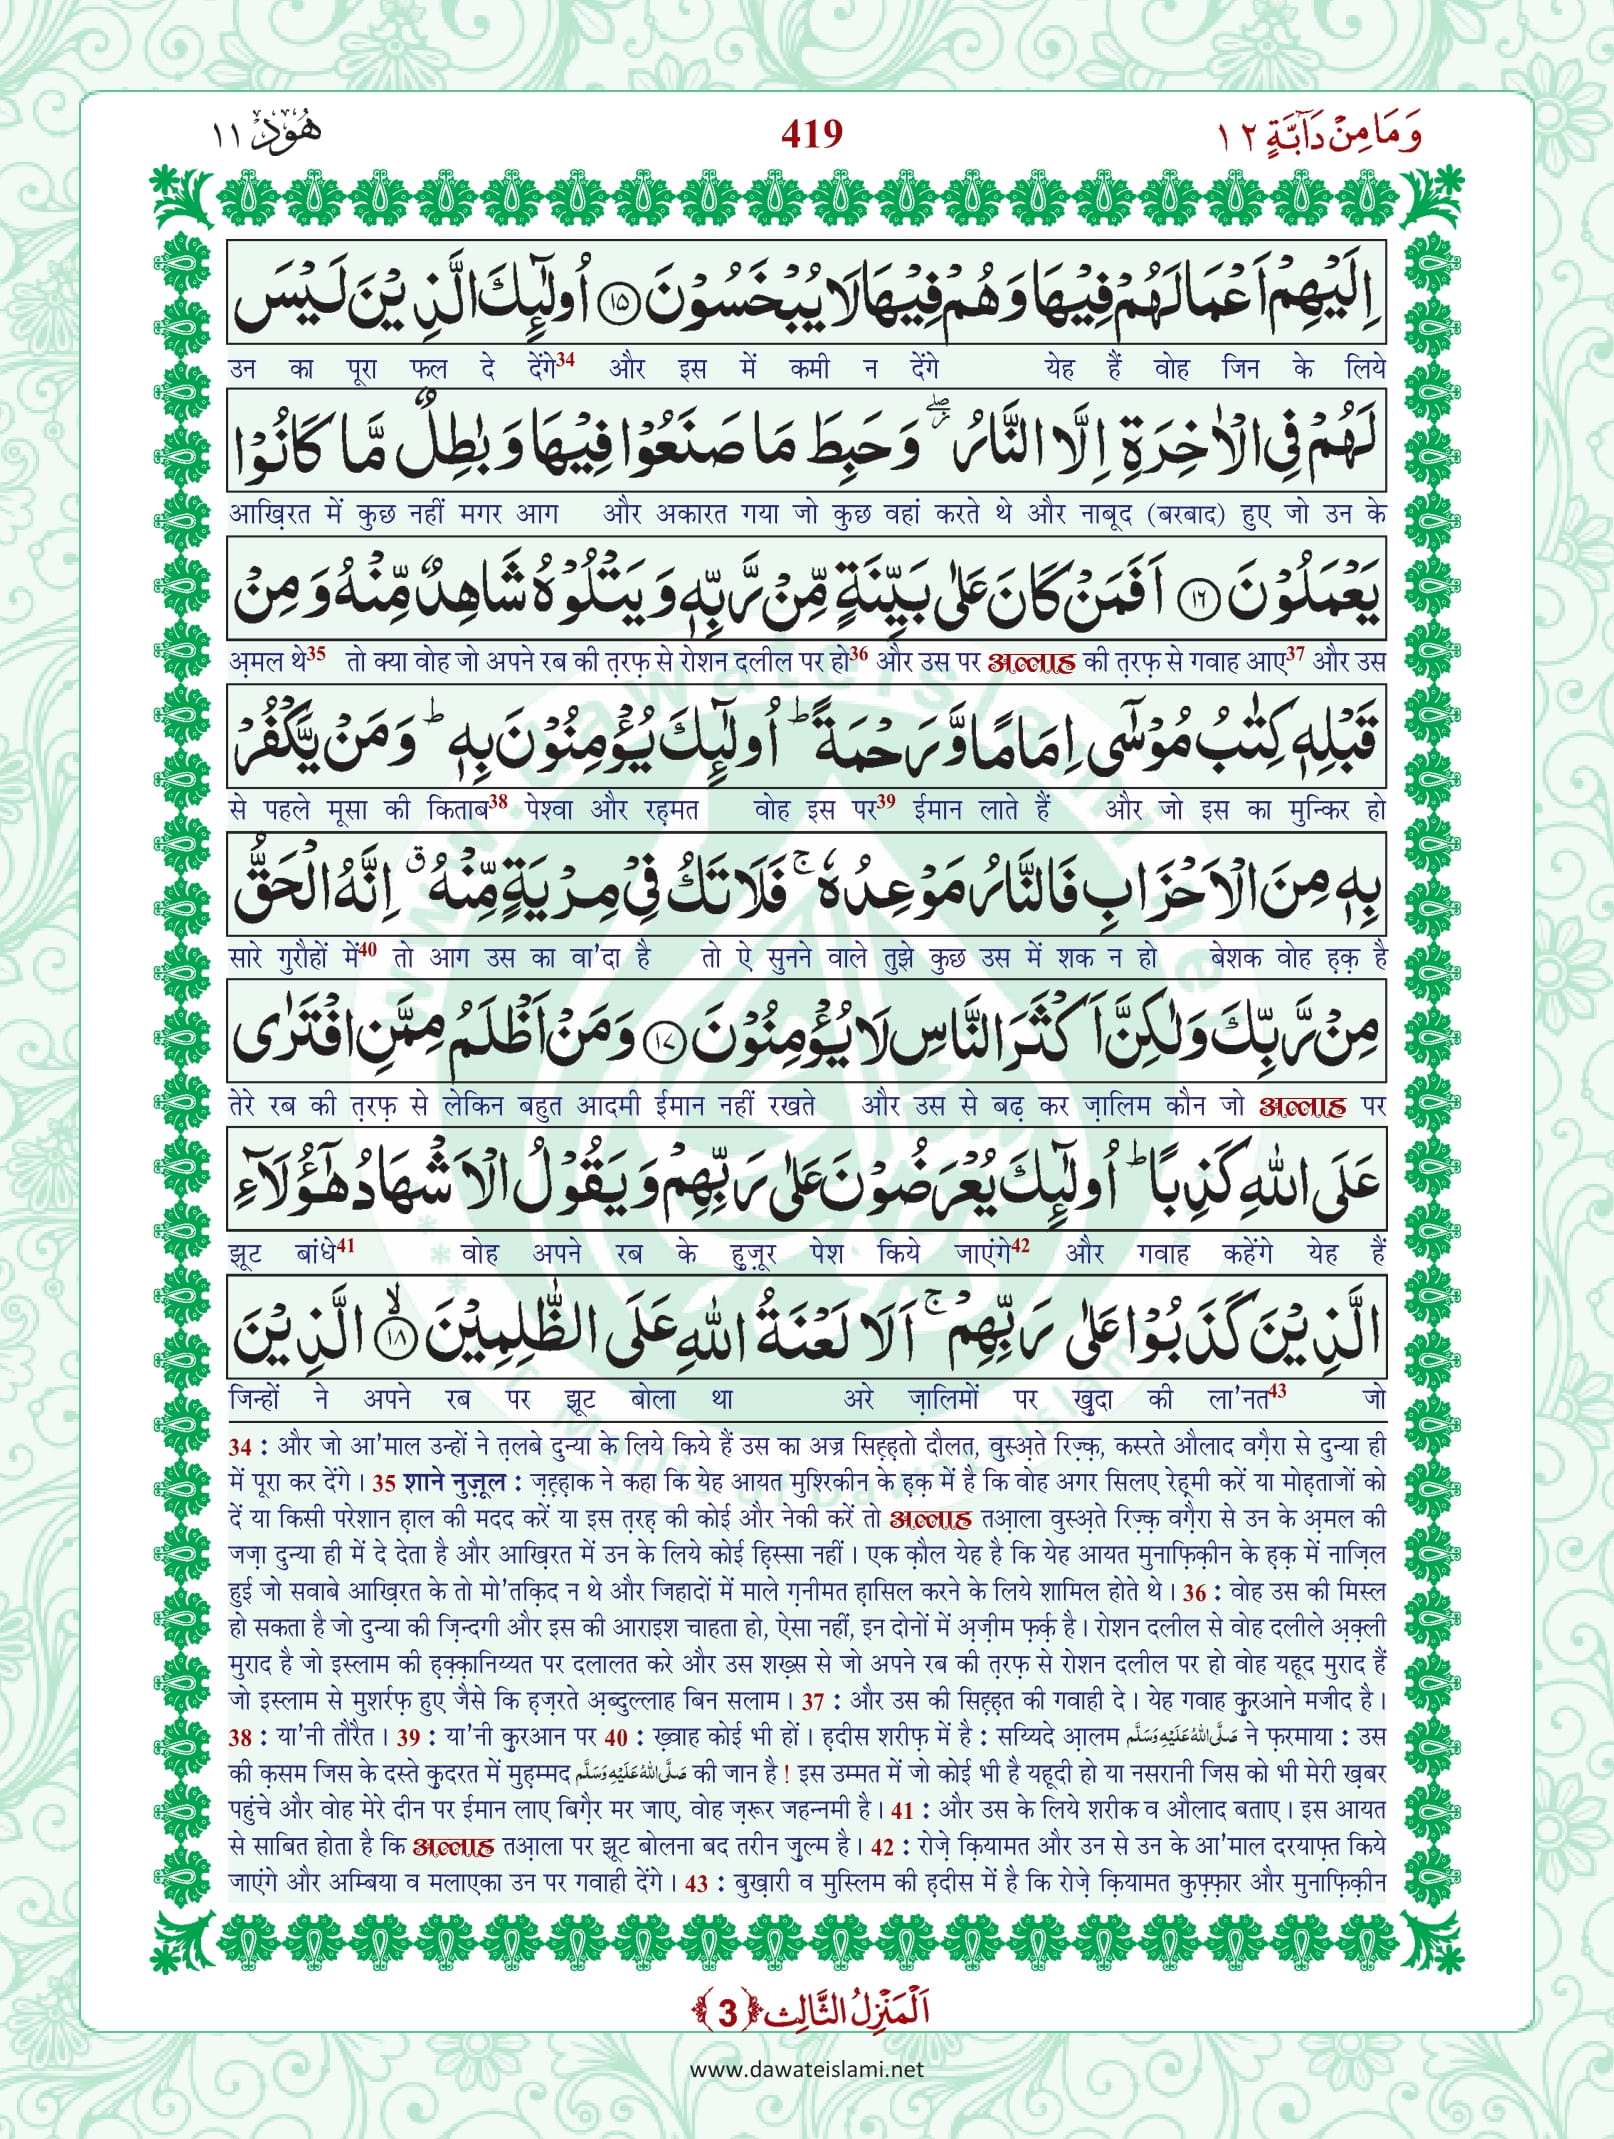 وَمَا مِنْ دَآبَّةٍ ١٢
419
هُوْد ١١
اِلَیْهِمْ اَعْمَالَهُمْ فِیْهَا وَهُمْ فِیْهَا لَا یُبْخَسُوْنَ ﴿۱۵﴾ اُولٰٓئِكَ الَّذِیْنَ لَیْسَ
उन का पूरा फल दे देंगे34 और इस में कमी न देंगे येह हैं वोह जिन के लिये
لَهُمْ فِی الْاٰخِرَةِ اِلَّا النَّارُ ۖ٘ وَحَبِطَ مَا صَنَعُوْا فِیْهَا وَبٰطِلٌ مَّا كَانُوْا
आख़िरत में कुछ नहीं मगर आग और अकारत गया जो कुछ वहां करते थे और नाबूद (बरबाद) हुए जो उन के
یَعْمَلُوْنَ ﴿۱۶﴾ اَفَمَنْ كَانَ عَلٰی بَیِّنَةٍ مِّنْ رَّبِّهٖ وَیَتْلُوْهُ شَاهِدٌ مِّنْهُ وَمِنْ
अ़मल थे35 तो क्या वोह जो अपने रब की त़रफ़ से रोशन दलील पर हो36 और उस पर अल्लाह की त़रफ़ से गवाह आए37 और उस
قَبْلِهٖ كِتٰبُ مُوْسٰۤی اِمَامًا وَّرَحْمَةً ؕ اُولٰٓئِكَ یُؤْمِنُوْنَ بِهٖ ؕ وَمَنْ یَّكْفُرْ
से पहले मूसा की किताब38 पेश्वा और रह़मत वोह इस पर39 ईमान लाते हैं और जो इस का मुन्किर हो
بِهٖ مِنَ الْاَحْزَابِ فَالنَّارُ مَوْعِدُهٗ ۚ فَلَا تَكُ فِیْ مِرْیَةٍ مِّنْهُ ۗ اِنَّهُ الْحَقُّ
सारे गुरौहों में40 तो आग उस का वा'दा है तो ऐ सुनने वाले तुझे कुछ उस में शक न हो बेशक वोह ह़क़ है
مِنْ رَّبِّكَ وَلٰكِنَّ اَكْثَرَ النَّاسِ لَا یُؤْمِنُوْنَ ﴿۱۷﴾ وَمَنْ اَظْلَمُ مِمَّنِ افْتَرٰی
तेरे रब की त़रफ़ से लेकिन बहुत आदमी ईमान नहीं रखते और उस से बढ़ कर ज़ालिम कौन जो अल्लाह पर
عَلَی اللّٰهِ كَذِبًا ؕ اُولٰٓئِكَ یُعْرَضُوْنَ عَلٰی رَبِّهِمْ وَیَقُوْلُ الْاَشْهَادُ هٰۤؤُلَآءِ
झूट बांधे41 वोह अपने रब के ह़ुज़ूर पेश किये जाएंगे42 और गवाह कहेंगे येह हैं
الَّذِیْنَ كَذَبُوْا عَلٰی رَبِّهِمْ ۚ اَلَا لَعْنَةُ اللّٰهِ عَلَی الظّٰلِمِیْنَ ﴿ۙ۱۸﴾ الَّذِیْنَ
जिन्हों ने अपने रब पर झूट बोला था अरे ज़ालिमों पर खुदा की ला'नत43 जो
34 : और जो आ'माल उन्हों ने त़लबे दुन्या के लिये किये हैं उस का अज्र सिह़्ह़तो दौलत, वुस्अ़ते रिज़्क़, कस्रते औलाद वग़ैरा से दुन्या ही
में पूरा कर देंगे । 35 शाने नुज़ूल : ज़ह़्ह़ाक ने कहा कि येह आयत मुश्रिकीन के ह़क़ में है कि वोह अगर सिलए रेह़मी करें या मोह़ताजों को
दें या किसी परेशान ह़ाल की मदद करें या इस त़रह़ की कोई और नेकी करें तो अल्लाह तआ़ला वुस्अ़ते रिज़्क़ वग़ैरा से उन के अ़मल की
जज़ा दुन्या ही में दे देता है और आख़िरत में उन के लिये कोई ह़िस्सा नहीं । एक क़ौल येह है कि येह आयत मुनाफ़िक़ीन के ह़क़ में नाज़िल
हुई जो सवाबे आख़िरत के तो मो'तक़िद न थे और जिहादों में माले ग़नीमत ह़ासिल करने के लिये शामिल होते थे । 36 : वोह उस की मिस्ल
हो सकता है जो दुन्या की ज़िन्दगी और इस की आराइश चाहता हो, ऐसा नहीं, इन दोनों में अ़ज़ीम फ़र्क़ है । रोशन दलील से वोह दलीले अ़क़्ली
मुराद है जो इस्लाम की ह़क़्क़ानिय्यत पर दलालत करे और उस शख़्स से जो अपने रब की त़रफ़ से रोशन दलील पर हो वोह यहूद मुराद हैं
जो इस्लाम से मुशर्रफ़ हुए जैसे कि ह़ज़रते अ़ब्दुल्लाह बिन सलाम । 37 : और उस की सिह़्ह़त की गवाही दे । येह गवाह क़ुरआने मजीद है ।
38 : या'नी तौरैत । 39 : या'नी क़ुरआन पर 40 : ख़्वाह कोई भी हों । ह़दीस शरीफ़ में है : सय्यिदे आ़लम صَلَّى اللهُ عَلَيْهِ وَسَلَّم ने फ़रमाया : उस
की क़सम जिस के दस्ते क़ुदरत में मुह़म्मद صَلَّى اللهُ عَلَيْهِ وَسَلَّم की जान है ! इस उम्मत में जो कोई भी है यहूदी हो या नसरानी जिस को भी मेरी ख़बर
पहुंचे और वोह मेरे दीन पर ईमान लाए बिग़ैर मर जाए, वोह ज़रूर जहन्नमी है । 41 : और उस के लिये शरीक व औलाद बताए । इस आयत
से साबित होता है कि अल्लाह तआ़ला पर झूट बोलना बद तरीन ज़ुल्म है । 42 : रोज़े क़ियामत और उन से उन के आ'माल दरयाफ़्त किये
जाएंगे और अम्बिया व मलाएका उन पर गवाही देंगे । 43 : बुख़ारी व मुस्लिम की ह़दीस में है कि रोज़े क़ियामत कुफ़्फ़ार और मुनाफ़िक़ीन
اَلْمَنْزِلُ الثَّالِث ﴿3﴾
www.dawateislami.net